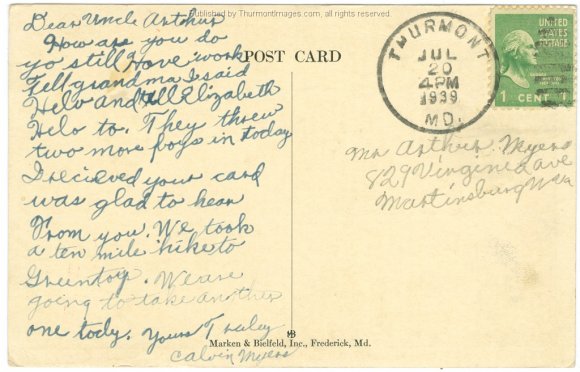 Published by ThurmontImages.com, all rights reserved
Dear Uncle Arthur
How are you do
yo still Have work
Tell grandma I said
Helo and tell Elizabeth
Helo to. They threw
two more boys in today
I recieved your card
was glad to hear
From you. We took
a ten mile hike to
Greentop. We are
going to take another
one tody. Yours Truley
Calvin Myers
POST CARD
THURMONT
JUL
20
4 PM
1939
MD.
UNITED
STATES
POSTAGE
1 CENT 1
Mr Arthur Myers
829 Virginia ave
Martinsburg W va
Marken & Bielfeld, Inc., Frederick, Md.